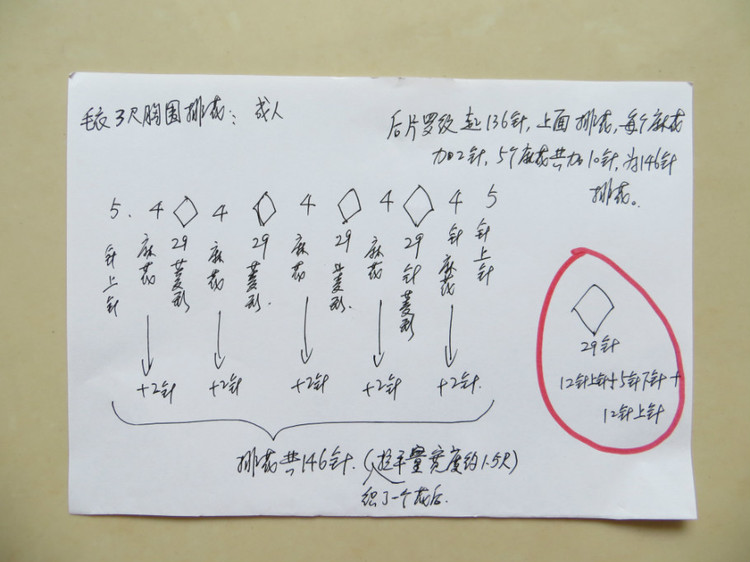 毛衣3尺胸围排花：成人
后片罗纹起136针，上面排花，每个麻花
加2针，5个麻花共加10针，为146针
排花。
5. 4 4 4 4 4 5
针上针 麻花 29菱形 麻花 29菱形. 麻花 29菱形. 麻花 29针菱形 针麻花 针上针
+2针 +2针 +2针 +2针 +2针.
排花共146针.（拉平量宽度约1.5尺）
织了一个花后.
29针
12针上针+5针下针+
12针上针